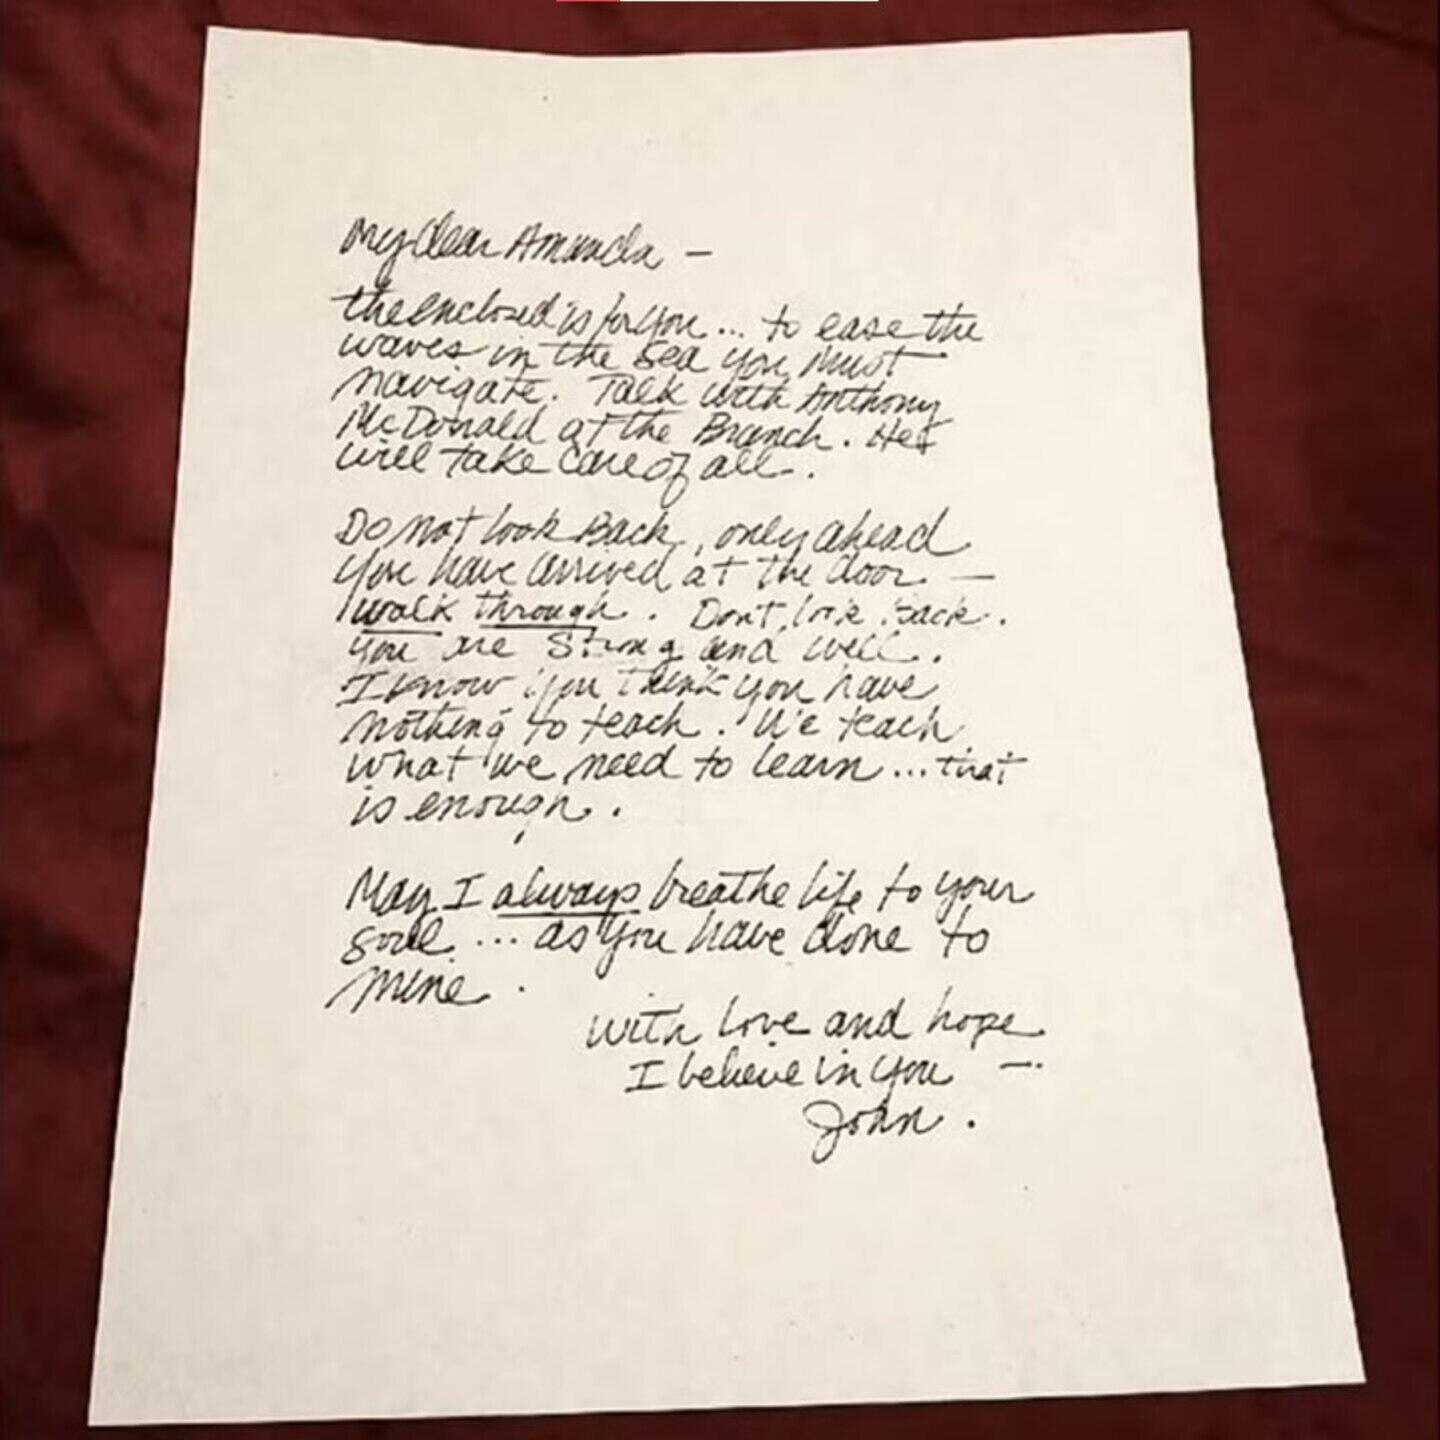 My Dear Amanda –
the enclosed is for you... to ease the
waves in the sea you must
navigate. Talk with Anthony
McDonald at the Branch. He
will take care of all.
Do not look Back, only ahead
you have arrived at the door. —
walk through. Don't look Back.
you are Strong and well.
I know you think you have
nothing to teach. We teach
what we need to learn... that
is enough.
May I always breathe life to your
soul... as you have done to
mine.
with love and hope
I believe in you —.
John.